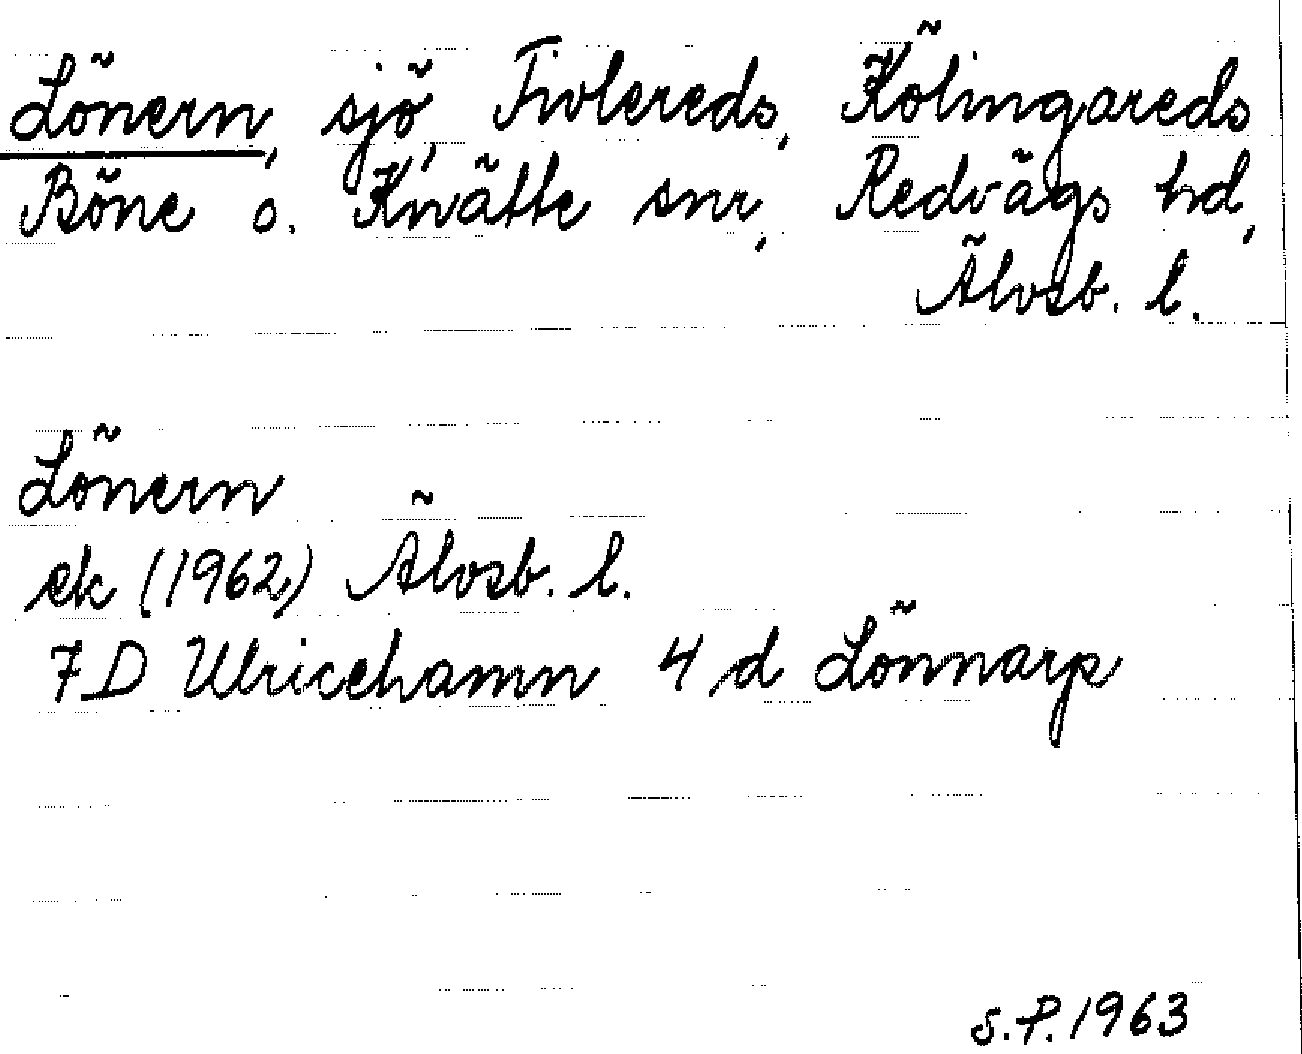 Lönern, sjö, Tivlereds, Kölingareds
Böne o. Knätte snr, Redvägs hd,
Älvsb. l.
Lönern
ek (1962) Älvsb. l.
7D Ulricehamn 4 d Lönnarp
S.P. 1963